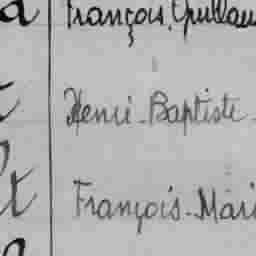 a François, Guillau
t Henri-Baptiste-
t François-Mari
a